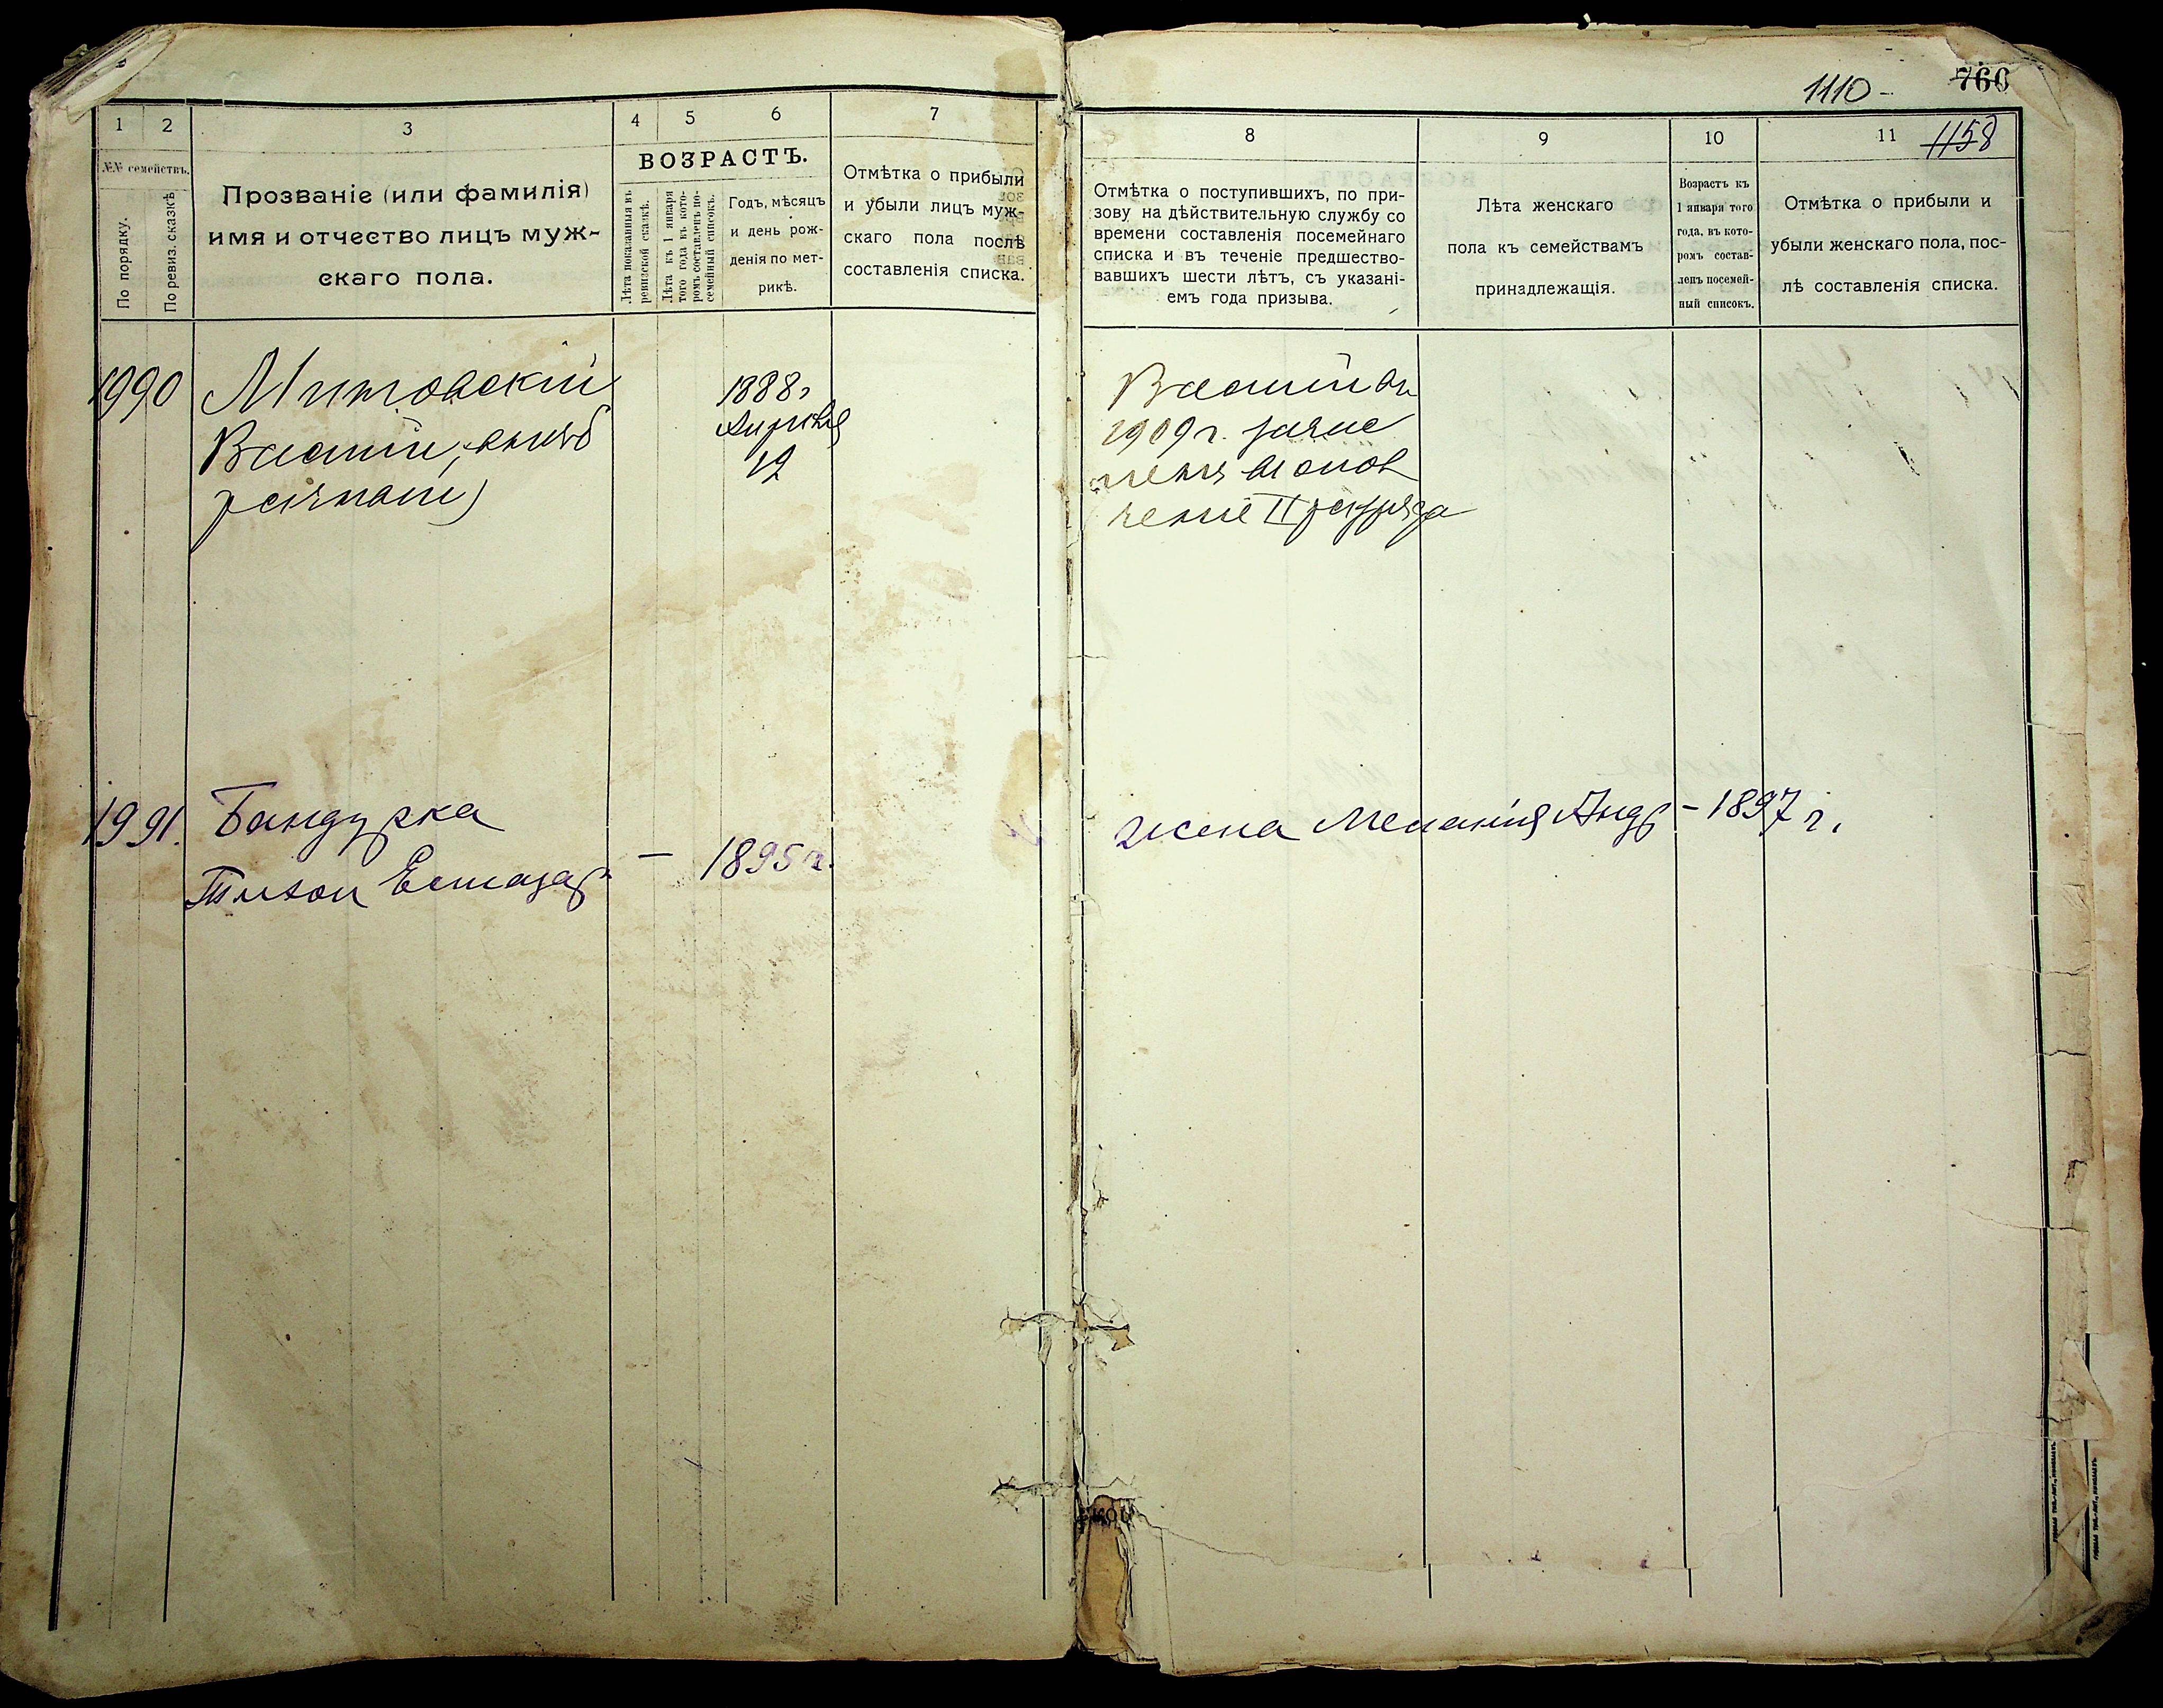 1110 -
766
1158
1
2
3
4
5
6
7
№№ семействъ.
По порядку.
По ревиз. сказкѣ
Прозваніе (или фамилія)
имя и отчество лицъ муж-
скаго пола.
ВОЗРАСТЪ.
Лѣта показанныя въ
ревизской сказкѣ.
Лѣта къ 1 января
того года въ кото-
ромъ составленъ по-
семейный списокъ.
Годъ, мѣсяцъ
и день рож-
денія по мет-
рикѣ.
Отмѣтка о прибыли
и убыли лицъ муж-
скаго пола послѣ
составленія списка.
8
9
10
11
Отмѣтка о поступившихъ, по при-
зову на дѣйствительную службу со
времени составленія посемейнаго
списка и въ теченіе предшество-
вавшихъ шести лѣтъ, съ указані-
емъ года призыва.
Лѣта женскаго
пола къ семействамъ
принадлежащія.
Возрастъ къ
1 января того
года, въ кото-
ромъ состав-
ленъ посемей-
ный списокъ.
Отмѣтка о прибыли и
убыли женскаго пола, пос-
лѣ составленія списка.
1990
Митовскій
Василій
1888 г
Апрѣля
12
Василій въ
1909 г. зачис
ленъ въ опол
ченіе II разряда
1991.
Бандурка
Тихон Елиазар
— 1895 г.
жена Меланія Андр - 1897 г.